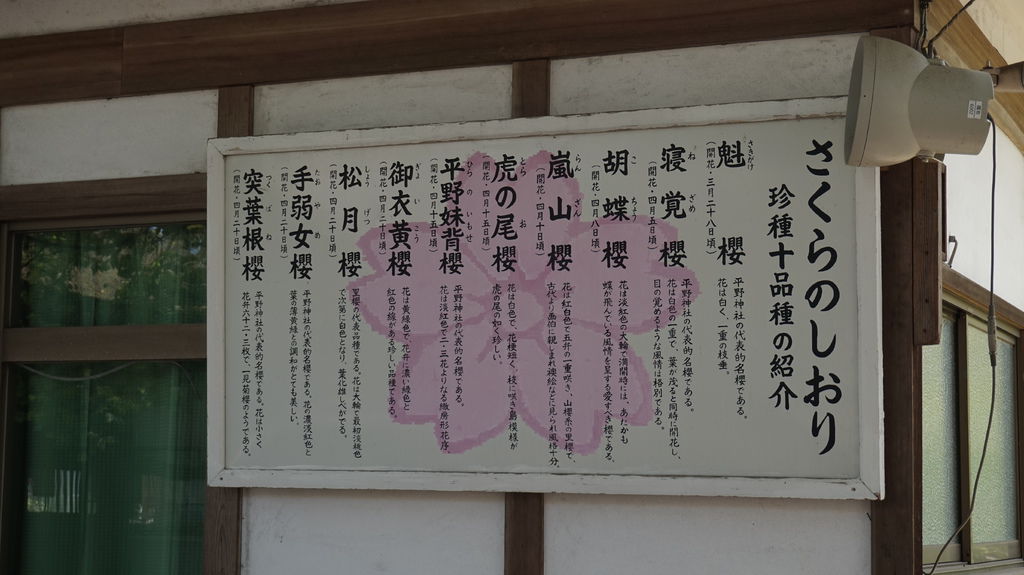 さくらのしおり
珍種十品種の紹介
魁 櫻
さきがけ
(開花・三月二十八日頃)
平野神社の代表的名櫻である。
花は白く、一重の枝垂。
寝覚櫻
ね ざめ
(開花・四月五日頃)
平野神社の代表的名櫻である。
花は白色の一重で、葉が茂ると同時に開花し、
目の覚めるような風情は格別である。
胡蝶櫻
こ ちょう
(開花・四月八日頃)
花は淡紅色の大輪で満開時には、あたかも
蝶が飛んでいる風情を呈する愛すべき櫻である。
嵐山櫻
らん ざん
(開花・四月十日頃)
花は紅白色で五弁の一重咲き、山櫻系の里櫻で、
古代より画伯に親しまれ襖絵などに見られ風格十分。
虎の尾櫻
とら お
(開花・四月十五日頃)
花は白色で、花梗短く、枝に咲き群る模様が
虎の尾の如く珍しい。
平野妹背櫻
ひらの いもせ
(開花・四月十五日頃)
平野神社の代表的名櫻である。
花は淡紅色で二・三花よりなる繖房形花序。
御衣黄櫻
ぎょ い こう
(開花・四月二十日頃)
花は黄緑色で、花弁に濃い緑色と
紅色の線がある珍しい品種である。
松月櫻
しょう げつ
(開花・四月二十日頃)
里櫻の代表品種である。花は大輪で最初淡桃色
で次第に白色となり、葉化雄しべがでる。
手弱女櫻
たお や め
(開花・四月二十日頃)
平野神社の代表的名櫻である。花の濃淡紅色と
葉の薄黄緑との調和がとても美しい。
突葉根櫻
つく ば ね
(開花・四月二十日頃)
平野神社の代表的名櫻である。花は小さく
花弁六十二・三枚で、一見菊櫻のようである。